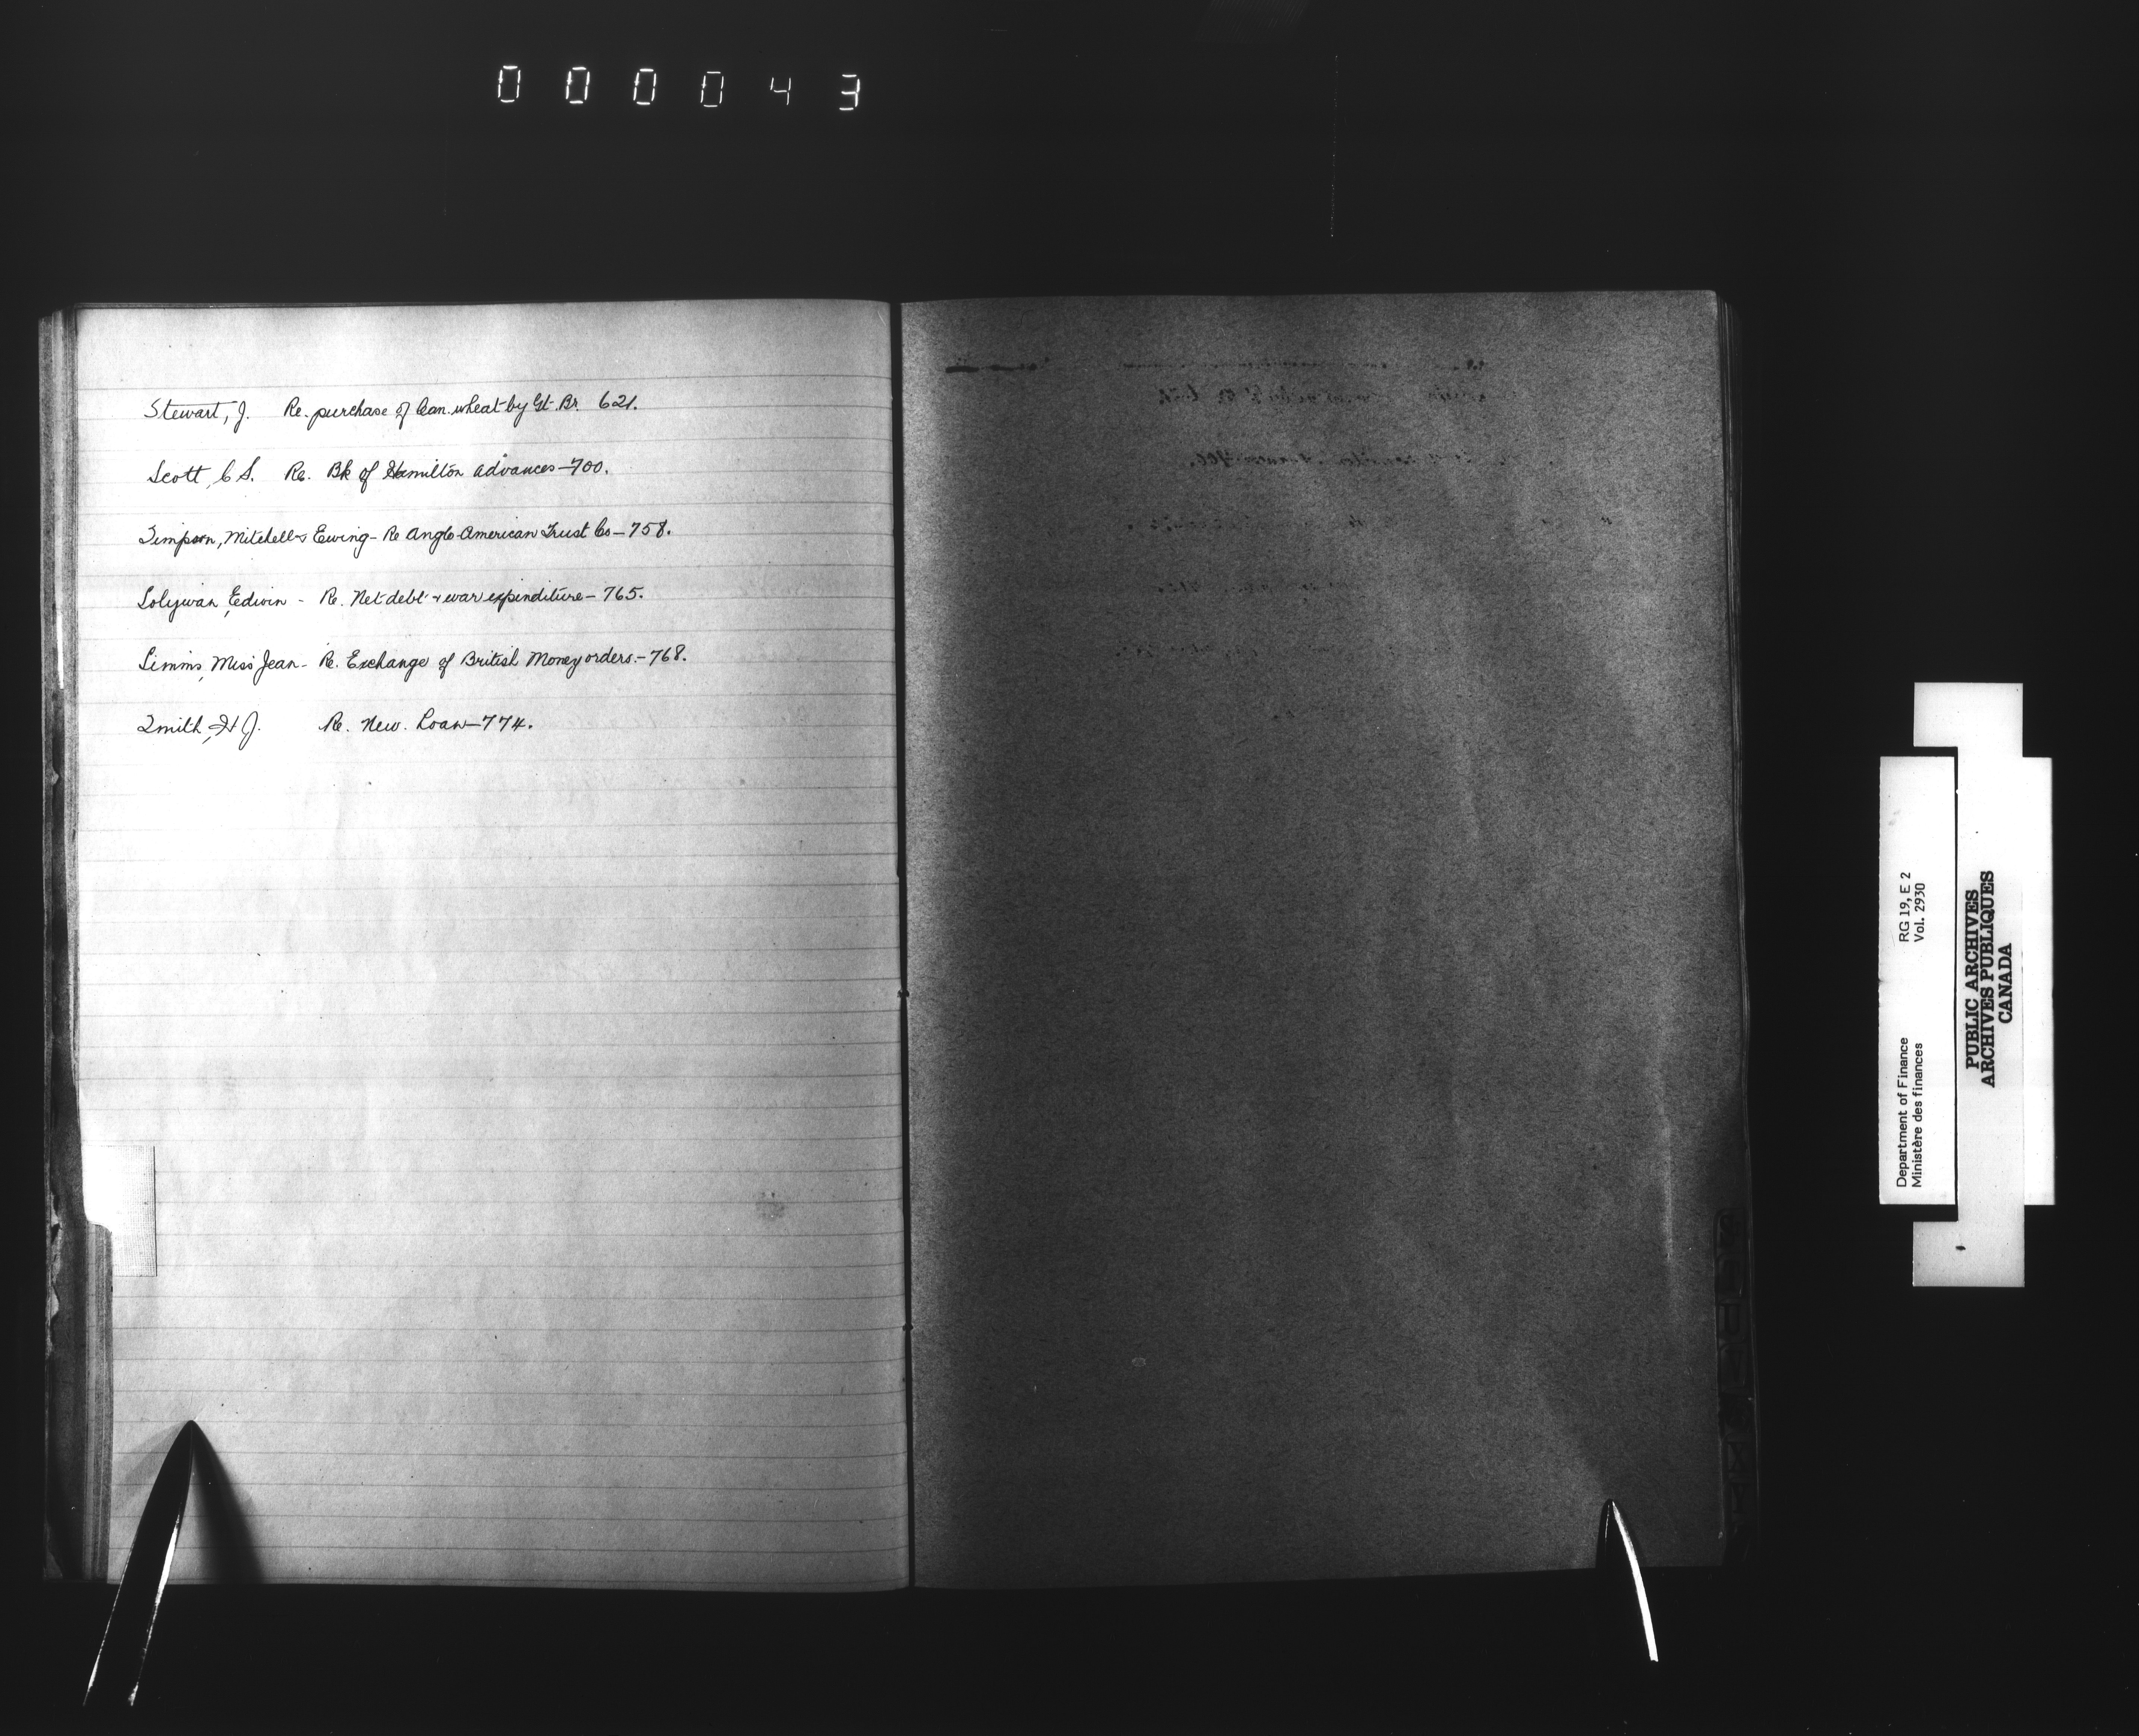 000043
Stewart, J. Re. purchase of Can. wheat by Gt. Br. 621.
Scott, C S. Re. Bk of Hamilton advances—700.
Simpson, Mitchell & Ewing - Re Anglo-American Trust Co—758.
Edwin - Re. Net debt & war expenditure—765.
Simms, Miss Jean - Re. Exchange of British Money orders.—768.
Smith, H J. Re. New. Loan—774.
RG 19, E 2
Vol. 2930
Department of Finance
Ministère des finances
PUBLIC ARCHIVES
ARCHIVES PUBLIQUES
CANADA